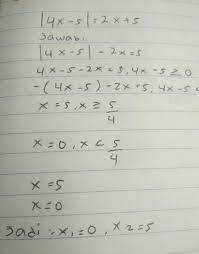 |4x-5| = 2x+5
Jawab:
|4x-5| - 2x = 5
4x-5-2x=5, 4x-5≥0
-(4x-5)-2x=5, 4x-5<
x=5, x≥5/4
x=0, x<5/4
x=5
x=0
Jadi: x₁=0, x2=5